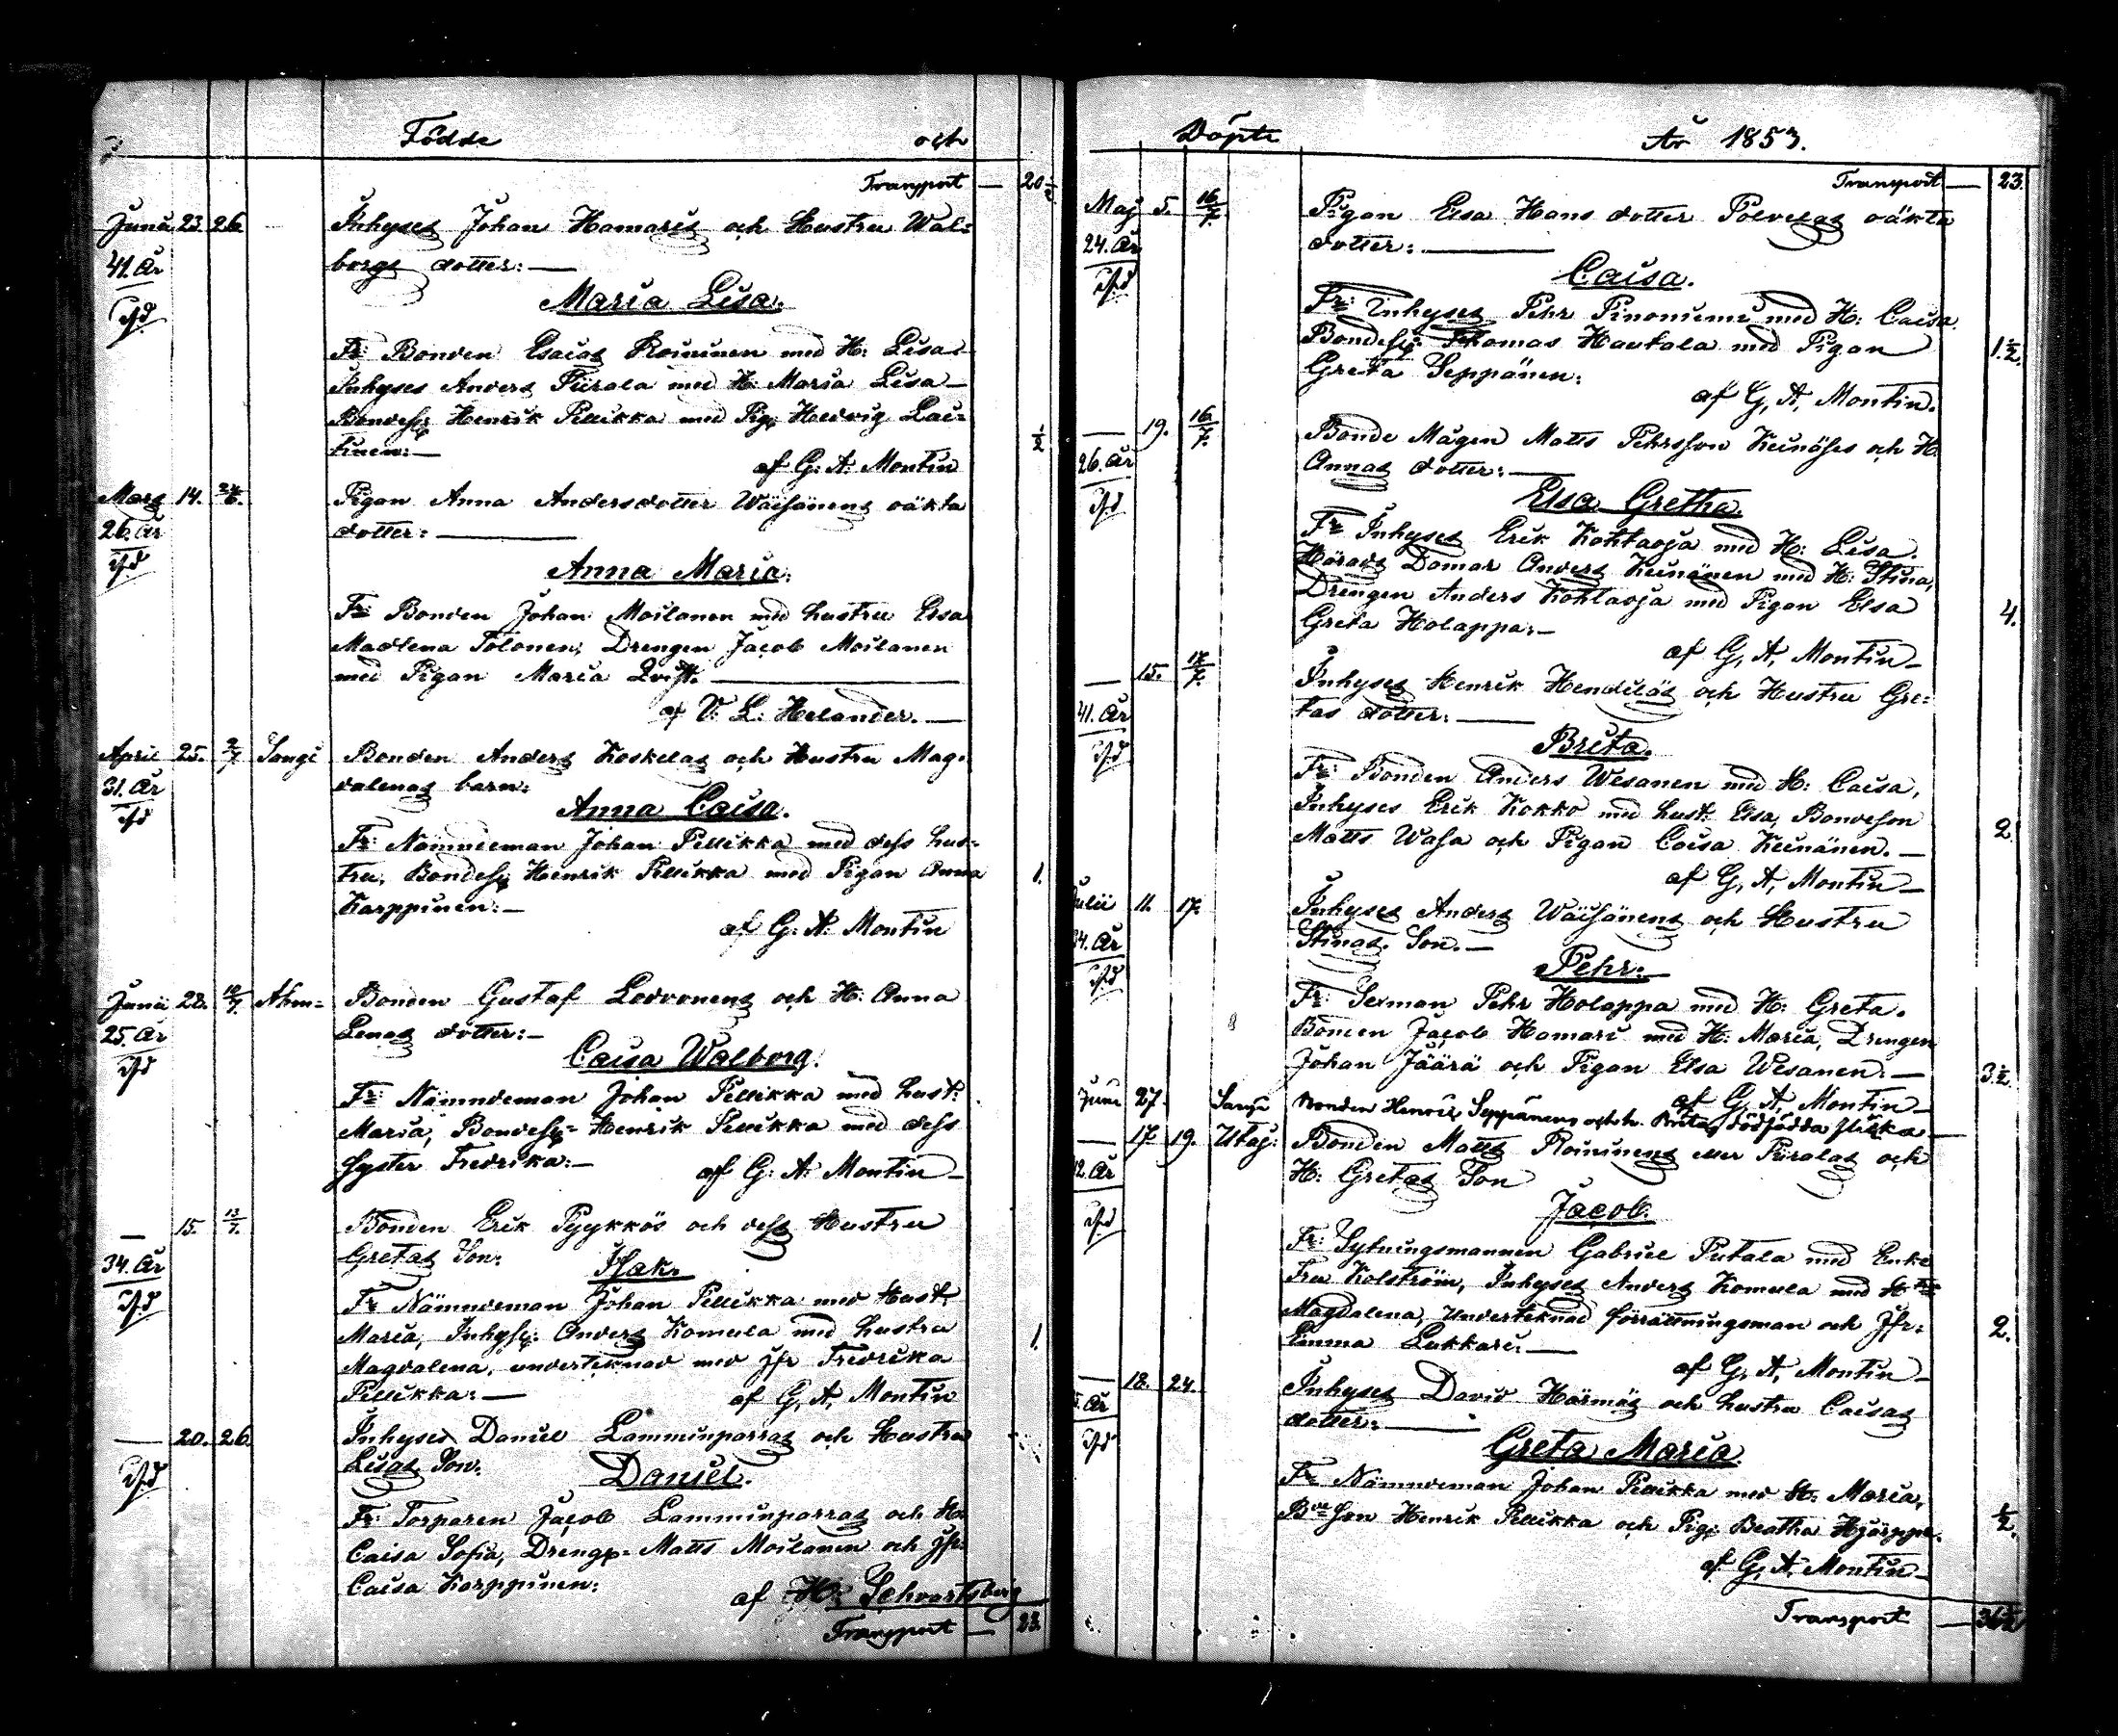 Födde och
Transport — 20½
Junii 23 26 Inhyses Johan Hamaris och Hustru Wal=
41. År borgs dotter: —
Maria Lisa.
Fr: Bonden Esaias Roininen med H: Lisa
Inhyses Anders Piirala med H: Maria Lisa —
Bondes: Henrik Pellikka med Pig: Hedvig Lai=
tinen: — ½
af G: A: Montin
Mars 14. 24/6. Pigan Anna Andersdotter Wäisänens oäkta
26. År dotter: —
Anna Maria.
Fr: Bonden Johan Moilanen med hustru Elsa
Madlena Tolonen, Drengen Jacob Moilanen
med Pigan Maria Qvist. —
af V: L: Helander. —
April 25. 2/7 Sangi Bonden Anders Koskelas och Hustru Mag=
31. År dalenas barn:
Anna Caisa.
Fr: Nämndeman Johan Pellikka med dess hus=
tru, Bondes: Henrik Pellikka med Pigan Anna 1.
Karppinen: —
af G: A: Montin
Junii 28. 10/7. Ahm= Bonden Gustaf Lovvonens och H: Anna
25. År Lenas dotter: —
Caisa Walborg.
Fr: Nämndeman Johan Pellikka med hust:
Maria, Bondes: Henrik Pellikka med dess
syster Fredrika: — af G: A: Montin —
— 15. 13/7. Bonden Erik Pyykkös och dess Hustru
34. År Gretas Son: Isak.
Fr: Nämndeman Johan Pellikka med Hust:
Maria, Inhys: Anders Komula med hustru 1.
Magdalena, underteknad med Jfr Fredrika
Pellikka: — af G, A, Montin
— 20. 26 Inhyses Daniel Lamminparras och Hustru
Lisas Son:
Daniel.
Fr: Torparen Jacob Lamminparras och H:
Caisa Sofia, Dreng: Matts Moilanen och Jfr:
Caisa Karppinen:
af H: Schvartsberg
Transport — 23.
Döpte År 1853.
Transport — 23.
Maj 5. 16/7. Pigan Elsa Hans dotter Polvelas oäkta
24. År dotter: —
Caisa.
Fr: Inhyses Pehr Pinoniemi med H: Caisa
Bondes: Thomas Hautala med Pigan 1½
Greta Seppänen:
af G, A, Montin.
— 19. 16/7. Bonde Mågen Matts Pehrsson Keinäses och H:
26. År Annas dotter: —
Elsa Gretha.
Fr: Inhyses Erik Kohtaoja med H: Lisa.
Härads Domar Anders Keinänen med H: Stina,
Drengen Anders Kohtaoja med Pigan Elsa
Greta Holappa: — 4.
af G, A, Montin —
— 15. 17/7. Inhyses Henrik Hendiläs och Hustru Gre=
41. År tas dotter: —
Brita.
Fr: Bonden Anders Wesanen med H: Caisa,
Inhyses Erik Kokko med hust: Elsa, Bondeson
Matts Wasa och Pigan Caisa Keinänen. — 2
af G, A, Montin —
Julii 11. 17. Inhyses Anders Wäisänens och Hustru
34. År Stinas Son. —
Pehr: —
Fr: Sexman Pehr Holappa med H: Greta.
Bonden Jacob Hamari med H: Maria, Drengen
Johan Jäärä och Pigan Elsa Wesanen. — 3½
af G, A, Montin —
Juni 27. Sangi Bonden Henrik Seppänens och h. Britas dödfödda flicka —
— 17 19. Utaj: Bonden Matts Roininens eller Piiralas och
42. År H: Gretas Son
Jacob.
Fr: Sytningsmannen Gabriel Putala med Enke
Fru Kolström, Inhyses Anders Komula med H:
Magdalena, Underteknad förrättningsman och Jfr: 2.
Emma Lukkari: —
af G, A, Montin —
— 18. 24. Inhyses David Härmäs och hustru Caisas
dotter: —
Greta Maria.
Fr: Nämndeman Johan Pellikka med H: Maria,
Bde Son Henrik Pellikka och Pig: Beatha Hyärppe. ½.
af G, A, Montin —
Transport — 36½